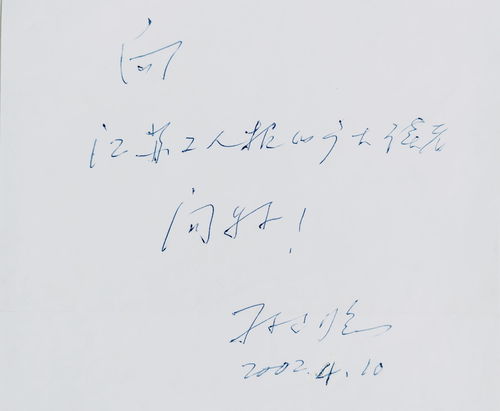 向
江苏工人报的广大读者
问好！
2002.4.10